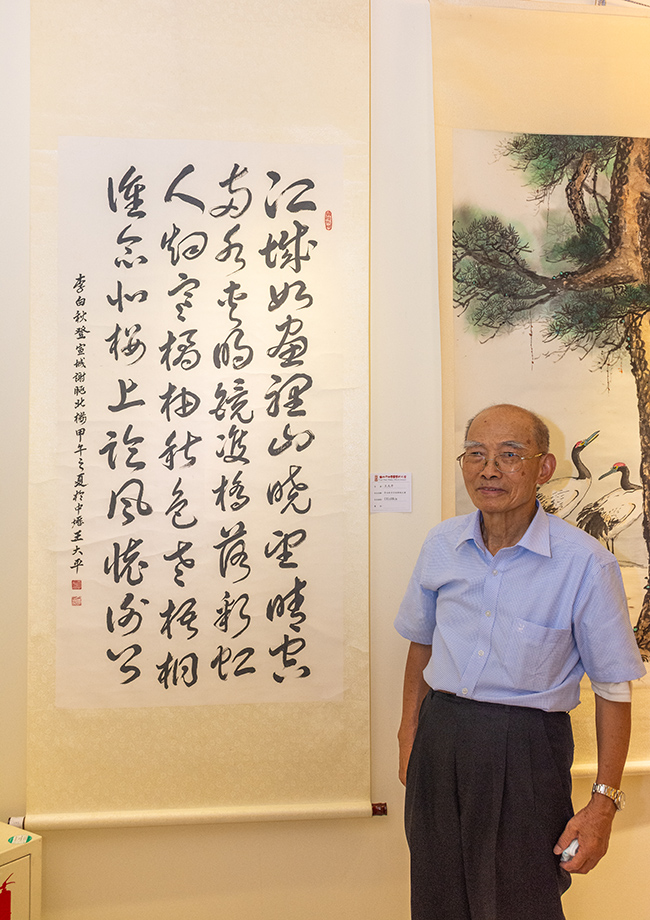 江城如畫裡山曉望晴空
兩水夾明鏡雙橋落彩虹
人烟寒橘柚秋色老梧桐
誰念北樓上臨風懷謝公
李白秋登宣城謝脁北樓甲午之夏於中壢王大平